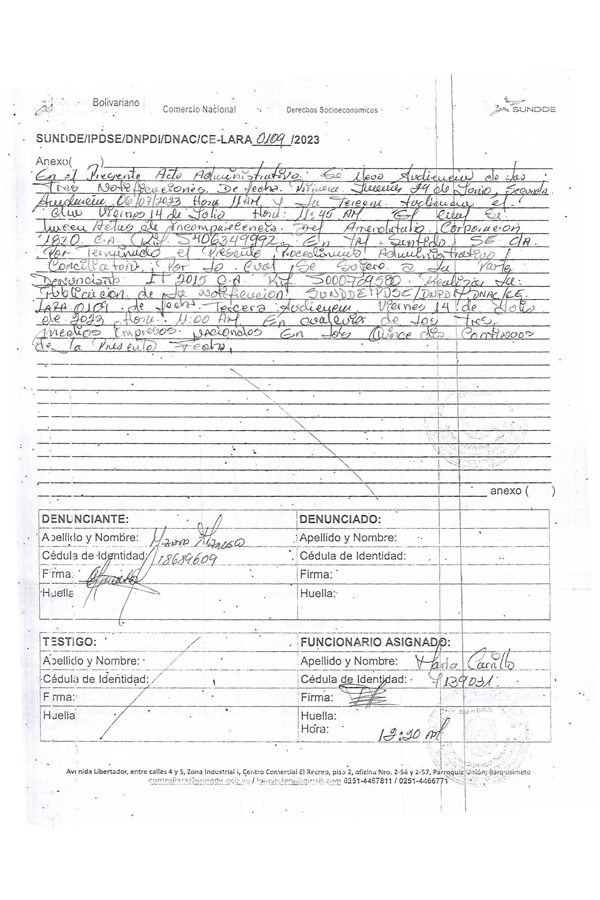 Bolivariano
Comercio Nacional
Derechos Socioeconomicos
SUNDDE
SUNDDE/IPDSE/DNPDI/DNAC/CE-LARA 0109 /2023
Anexo( )
En el Presente Acto Administrativo. Se llevo Audiencia de las
Tres Notificaciones. De fecha. Primera. Jueves 29 de Junio, Segunda
Audiencia, 06/07/2023 Hora 11 AM y La Tercera Audiencia el
Viernes 14 de Julio Hora: 11:45 AM El Cual Se
Actas de incomparecencia. Del Corporacion
1820 C.A, Rif. J406349992. En Tal Sentido, SE DA
Por Terminado el Presente Procedimiento Administrativo
Conciliatorio, Por lo cual, Se a la Parte
Denunciante IT 2015 C.A. Rif Realizar la:
Publicacion de la Notificacion SUNDDE/IPDSE/DNPDI/DNAC/CE
LARA 0109 de fecha Tercera Audiencia Viernes 14 de Julio
de 2023 Hora: 11:00 AM En cualquier de los Tres.
medios Impresos Nacionales En los Quince dias Continuos
de la Presente Fecha,
anexo ( )
DENUNCIANTE:
Apellido y Nombre:
Cédula de Identidad: 18689609
Firma:
Huella
DENUNCIADO:
Apellido y Nombre:
Cédula de Identidad:
Firma:
Huella:
TESTIGO:
Apellido y Nombre:
Cédula de Identidad:
Firma:
Huella
FUNCIONARIO ASIGNADO:
Apellido y Nombre: Maria Carrillo
Cédula de Identidad: 7139031
Firma:
Huella:
Hora: 12:20 M
Avenida Libertador, entre calles 4 y 5, Zona Industrial I, Centro Comercial El Recreo, piso 2, oficina Nro. 2-56 y 2-57, Parroquia Unión; Barquisimeto
0251-4467811 / 0251-4466771